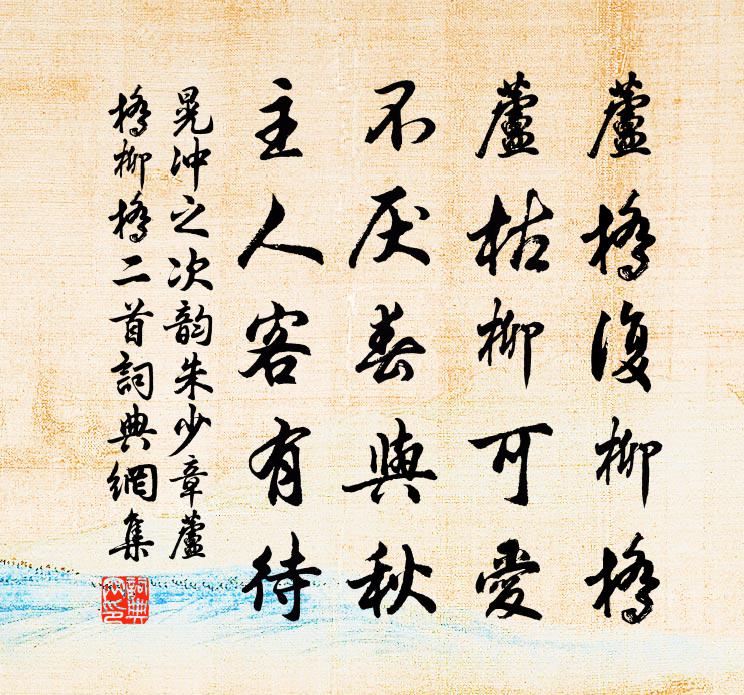 蘆橋復柳橋
蘆枯柳可愛
不厌春與秋
主人客有待
晁冲之次韵朱少章蘆
橋柳橋二首詞典網集